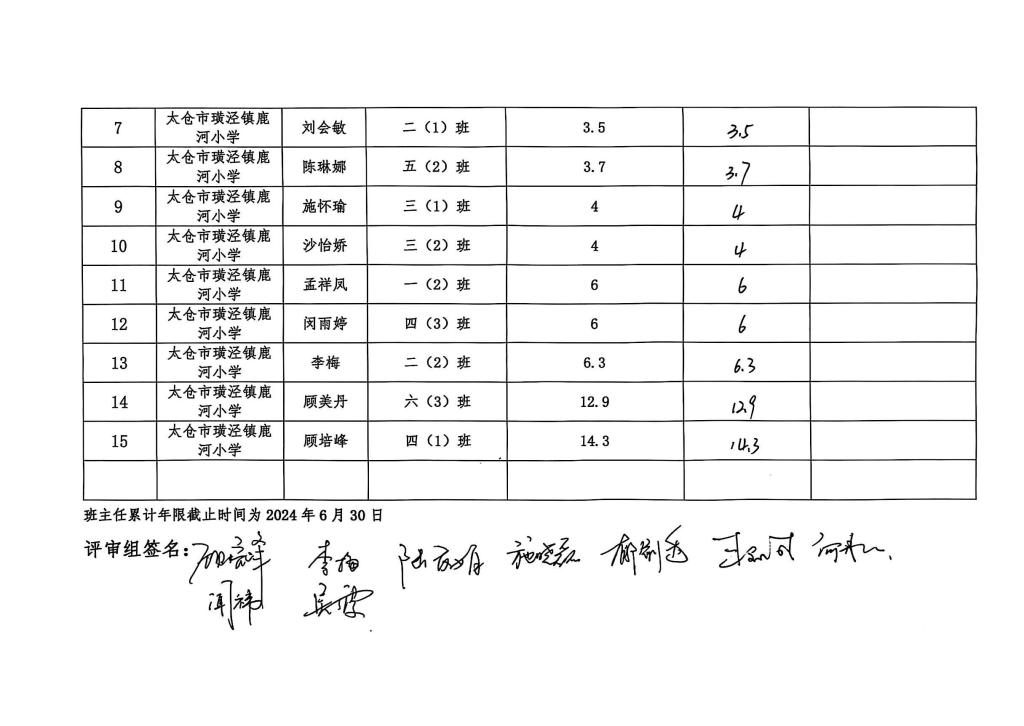 7 太仓市璜泾镇鹿河小学 刘会敏 二（1）班 3.5 3.5
8 太仓市璜泾镇鹿河小学 陈琳娜 五（2）班 3.7 3.7
9 太仓市璜泾镇鹿河小学 施怀瑜 三（1）班 4 4
10 太仓市璜泾镇鹿河小学 沙怡娇 三（2）班 4 4
11 太仓市璜泾镇鹿河小学 孟祥凤 一（2）班 6 6
12 太仓市璜泾镇鹿河小学 闵雨婷 四（3）班 6 6
13 太仓市璜泾镇鹿河小学 李梅 二（2）班 6.3 6.3
14 太仓市璜泾镇鹿河小学 顾美丹 六（3）班 12.9 12.9
15 太仓市璜泾镇鹿河小学 顾培峰 四（1）班 14.3 14.3
班主任累计年限截止时间为 2024 年 6 月 30 日
评审组签名：顾培峰 李梅